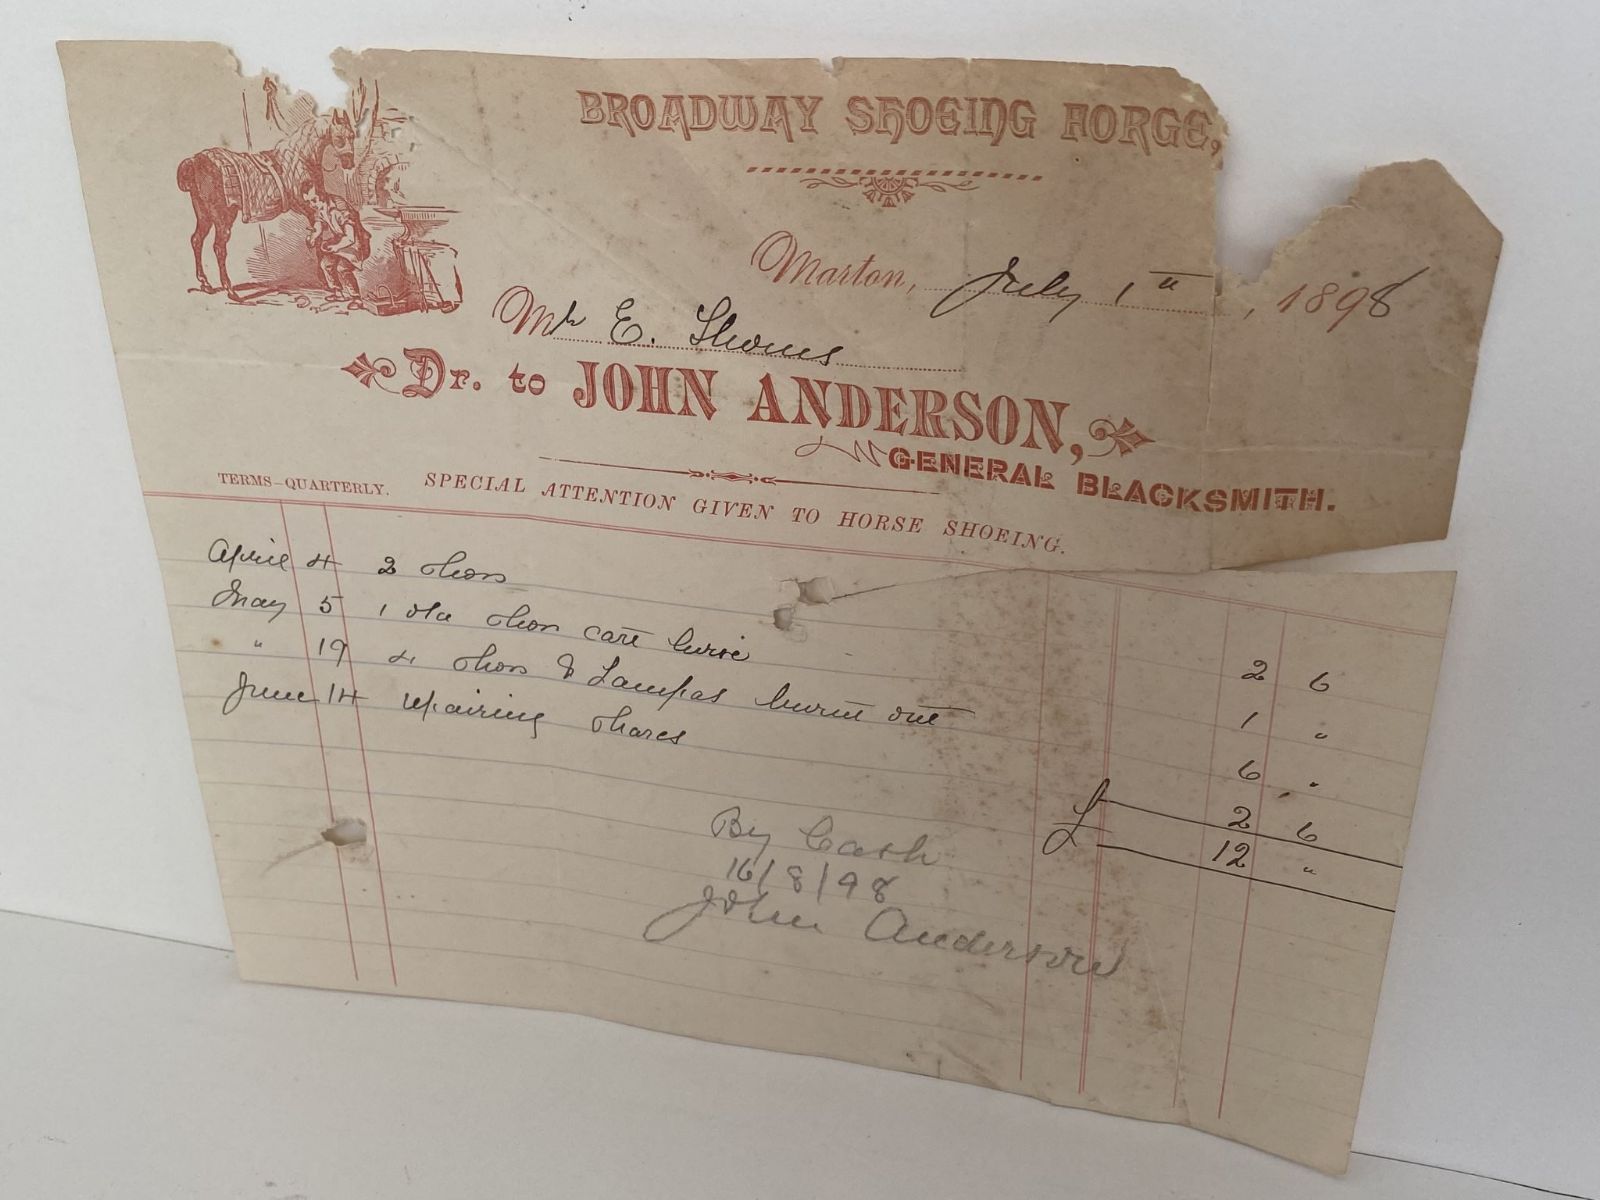 BROADWAY SHOEING FORGE,
Marton, July 1st, 1898
Mr E. Thoms
Dr. to JOHN ANDERSON,
GENERAL BLACKSMITH.
TERMS–QUARTERLY. SPECIAL ATTENTION GIVEN TO HORSE SHOEING.
April 4 2 shoes 2 6
May 5 1 old shoe cart 1 "
" 19 4 shoes & Lampas burnt out 6 "
June 14 repairing shares 2 6
£ 12 "
By Cash
16/8/98
John Anderson